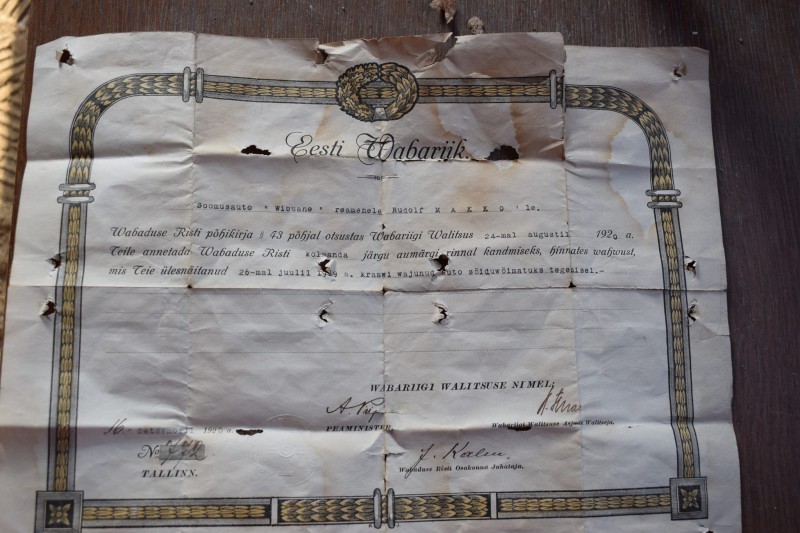 Eesti Wabariik.
Soomusauto "Wibuane" reamehele Rudolf MAKKO'le.
Wabaduse Risti põhikirja § 43 põhjal otsustas Wabariigi Walitsus 24-mal augustil 1920 a.
Teile annetada Wabaduse Risti kolmanda järgu aumärgi rinnal kandmiseks, hinnates wahwust,
mis Teie ülesnäitanud 26-mal juulil 1919 a. kraawi wajunud auto sõiduwõimatuks tegemisel.-
WABARIIGI WALITSUSE NIMEL:
PEAMINISTER
Wabariigi Walitsuse Asjade Walitseja.
16. 1920 a.
No 772
J. Kalm
TALLINN.
Wabaduse Risti Osakonna Juhataja.